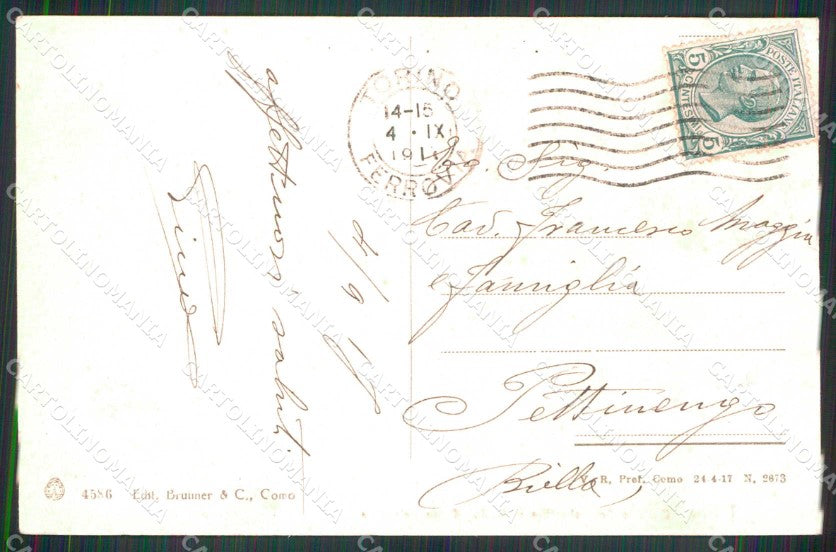 affettuosi saluti
Pino
4/9 17
TORINO
14-15
4 · IX
191
FERROVIA
POSTE ITALIANE
5 CENTESIMI 5
Sig.
Cav. Francesco Maggia
e famiglia
Pettinengo
Biella
4586 Edit. Brunner & C., Como
V. R, Pref. Como 24-4-17 N. 2673
CARTOLINOMANIA